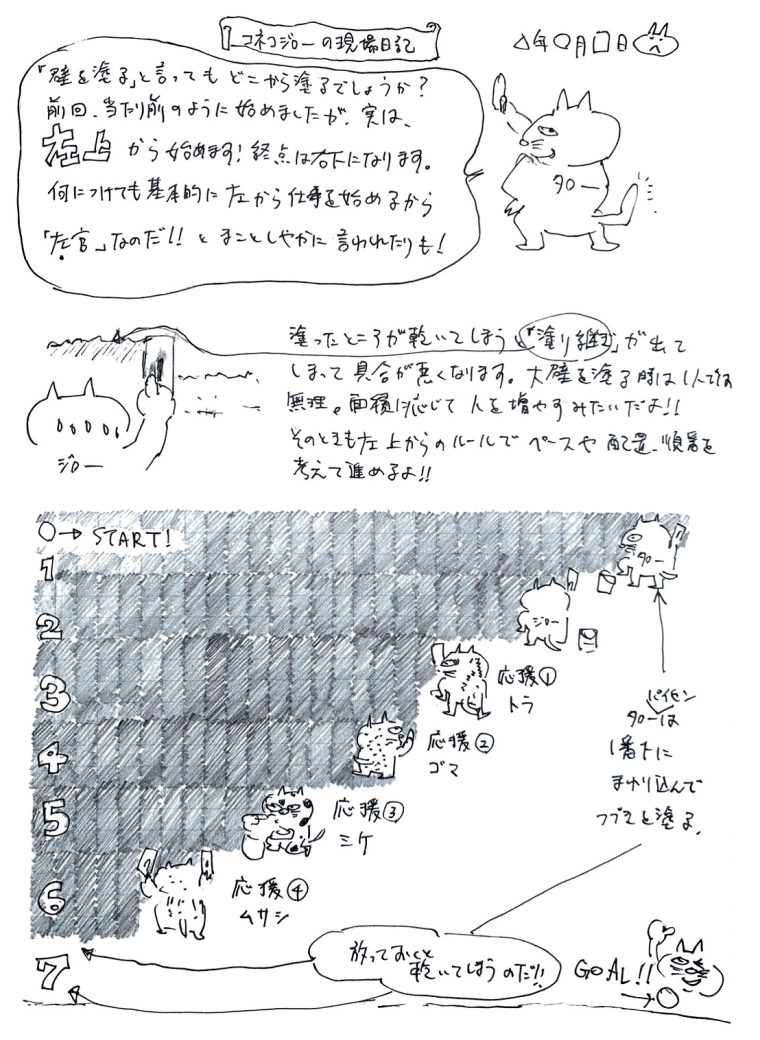 コネコジローの現場日記
△年○月□日
「壁を塗る」と言っても どこから塗るでしょうか?
前回、当たり前のように始めましたが、実は、
左上 から始めます! 終点は右下になります。
何につけても基本的に左から仕事を始めるから
「左官」なのだ!! と まことしやかに 言われたりも!
タロー
塗ったところが乾いてしまうと「塗り継ぎ」が出て
しまって 具合が悪くなります。大壁を塗る時は1人では
無理。面積に応じて 人を増やすみたいだよ!!
そのときも左上からのルールで ペースや 配置、順番を
考えて進めるよ!!
ジロー
○→ START!
タロー
1
ジロー
2
応援①
トラ
3
応援②
ゴマ
4
応援③
ミケ
5
応援④
ムサシ
6
7
パイセン
タローは
1番下に
まわり込んで
つづきを塗る。
放っておくと
乾いてしまうのだ!!
GOAL!!
→○